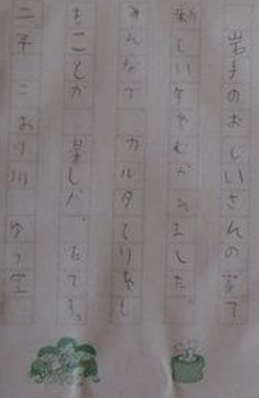 岩手のおじいさんの家で
新しいゲームが
ました。
みんなで カルタとりをし
たことが 楽しかったです。
二年 こおり川 ゆう